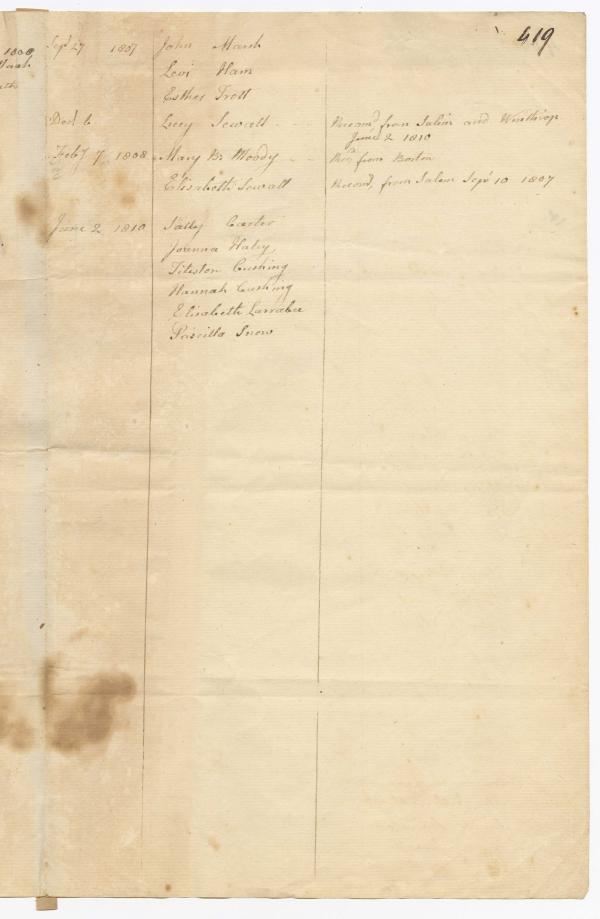 419
1808,
Sepr 27 1807 John Marsh
Levi Ham
Esther Trott
Decr 6 Lucy Sewall - - Recomd from Salem and Winthrop
June 2 1810
Feby 7 1808 Mary B. Moody - - Recd from Boston
Elisabeth Sewall Recomd, from Salem Sepr 10 1807
June 2 1810 Sally Carter
Joanna Haley
Tileston Cushing
Hannah Cushing
Elisabeth Larrabee
Priscilla Snow